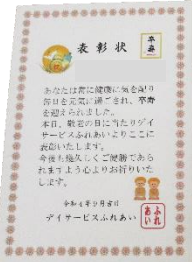 表彰状
卒寿
あなたは常に健康に気を配り
毎日を元気に過ごされ、卒寿
を迎えられました。
本日、敬老の日に当たりデイ
サービスふれあいよりここに
表彰いたします。
今後も幾久しくご健勝であら
れますよう心よりお祈りいた
します。
令和4年9月吉日
デイサービスふれあい
ふれ
あい